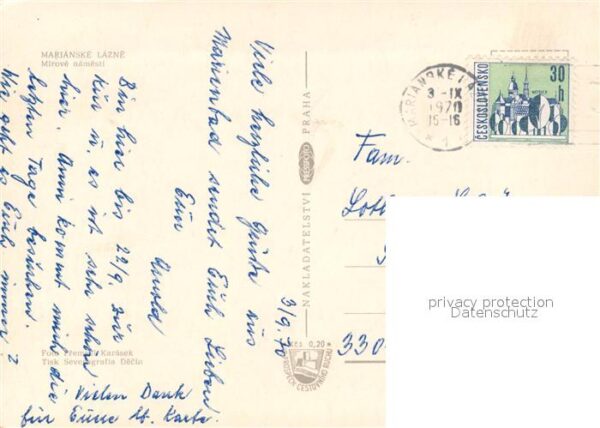 MARIÁNSKÉ LÁZNĚ
Mírové náměstí
3/9. 70
Viele herzliche Grüße aus
Marienbad sendet Euch Lieben
Euer
Arnold
Bin hier bis 22/9. zur
Kur u. es ist sehr schön
hier. Anni kommt mich die
letzten Tage besuchen.
Wie geht es Euch immer?
Vielen Dank
für Eure lb. Karte.
Foto Přemysl Karásek
Tisk Severografia Děčín
NAKLADATELSTVÍ PRESSFOTO PRAHA
Kčs 0,20
CESTOVNÍHO RUCHU
MARIÁNSKÉ LÁ
3.-IX
1970
15-16
1
ČESKOSLOVENSKO
30
h
Fam.
330
privacy protection
Datenschutz